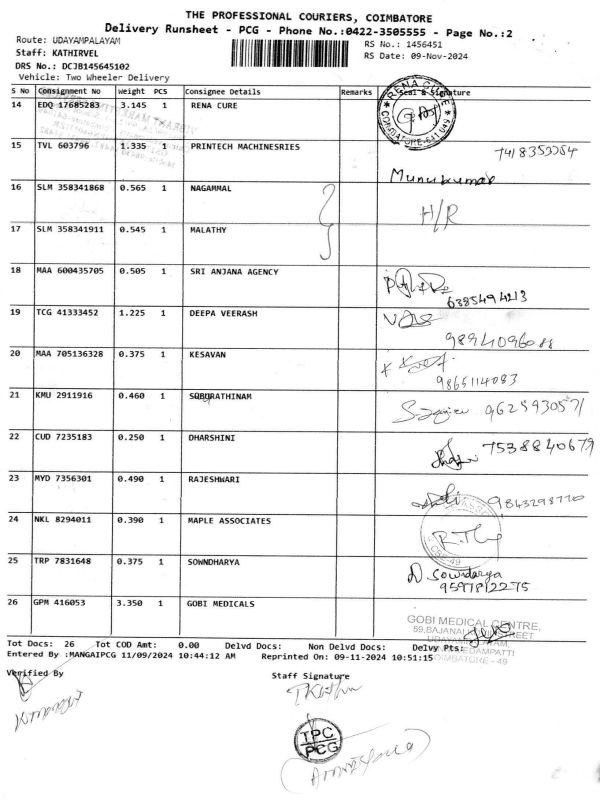 THE PROFESSIONAL COURIERS, COIMBATORE
Delivery Runsheet - PCG - Phone No.:0422-3505555 - Page No.:2
Route: UDAYAMPALAYAM RS No.: 1456451
Staff: KATHIRVEL RS Date: 09-Nov-2024
DRS No.: DCJB145645102
Vehicle: Two Wheeler Delivery
S No Consignment No Weight PCS Consignee Details Remarks Seal & Signature
14 EDQ 17685283 3.145 1 RENA CURE
RENA CURE COIMBATORE-641 049
15 TVL 603796 1.335 1 PRINTECH MACHINESRIES 7418353784
Munukumar
16 SLM 358341868 0.565 1 NAGAMMAL H/R
17 SLM 358341911 0.545 1 MALATHY
18 MAA 600435705 0.505 1 SRI ANJANA AGENCY
6385494213
19 TCG 41333452 1.225 1 DEEPA VEERASH
9894096088
20 MAA 705136328 0.375 1 KESAVAN
9865114083
21 KMU 2911916 0.460 1 SOBURATHINAM 9625930571
22 CUD 7235183 0.250 1 DHARSHINI 7538840679
23 MYD 7356301 0.490 1 RAJESHWARI 9843298770
24 NKL 8294011 0.390 1 MAPLE ASSOCIATES
25 TRP 7831648 0.375 1 SOWNDHARYA
D. Sowndarya
9597812275
26 GPM 416053 3.350 1 GOBI MEDICALS
GOBI MEDICAL CENTRE,
59,BAJANAI STREET
COIMBATORE - 49
Tot Docs: 26 Tot COD Amt: 0.00 Delvd Docs: Non Delvd Docs: Delvy Pts:
Entered By :MANGAIPCG 11/09/2024 10:44:12 AM Reprinted On: 09-11-2024 10:51:15
Verified By Staff Signature
TPC
PCG